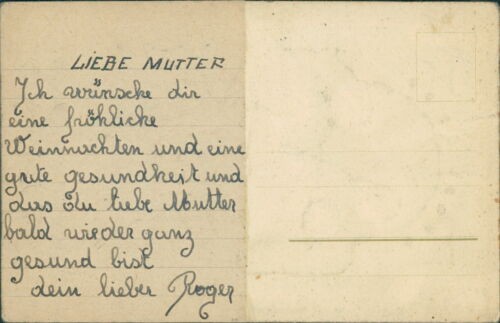 LIEBE MUTTER
Ich wünsche dir
eine fröhliche
Weinnachten und eine
gute gesundheit und
das du liebe Mutter
bald wieder ganz
gesund bist
dein lieber Roger